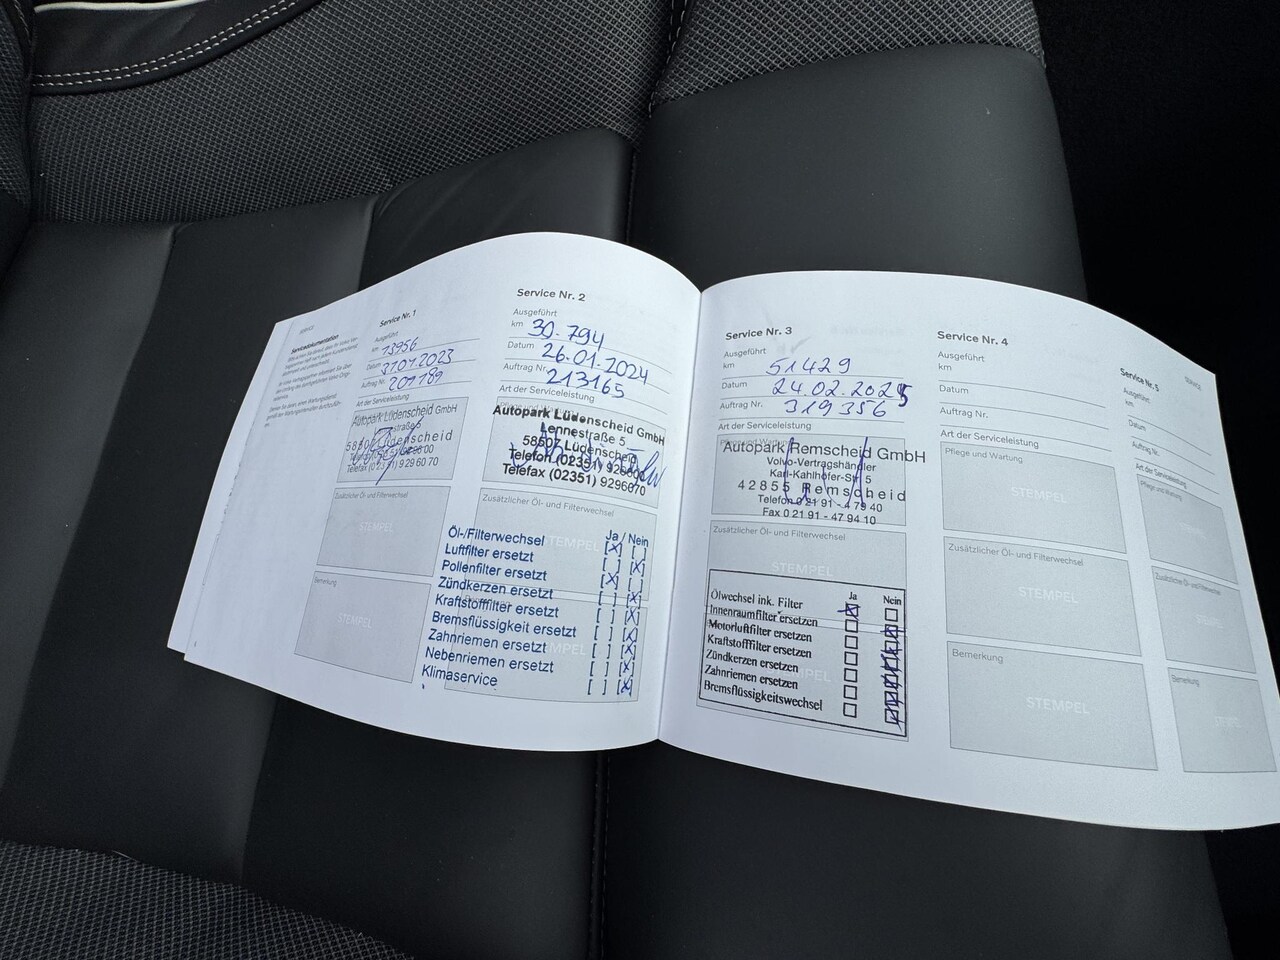 SERVICE
Servicedokumentation
Service Nr. 1
Ausgeführt
km 13956
Datum 31.01.2023
Auftrag Nr. 201189
Art der Serviceleistung
Autopark Lüdenscheid GmbH
58507 Lüdenscheid
Telefax (02351) 929 60 70
Zusätzlicher Öl- und Filterwechsel
STEMPEL
Bemerkung
STEMPEL
Service Nr. 2
Ausgeführt
km 30.794
Datum 26.01.2024
Auftrag Nr. 213165
Art der Serviceleistung
Autopark Lüdenscheid GmbH
Lennestraße 5
58507 Lüdenscheid
Telefon (02351) 929600
Telefax (02351) 9296070
Zusätzlicher Öl- und Filterwechsel
STEMPEL
Ja / Nein
Öl-/Filterwechsel [X] [ ]
Luftfilter ersetzt [ ] [X]
Pollenfilter ersetzt [X] [ ]
Zündkerzen ersetzt [ ] [X]
Kraftstofffilter ersetzt [ ] [X]
Bremsflüssigkeit ersetzt [ ] [X]
Zahnriemen ersetzt [ ] [X]
Nebenriemen ersetzt [ ] [X]
Klimaservice [ ] [X]
Service Nr. 3
Ausgeführt
km 51429
Datum 24.02.2025
Auftrag Nr. 319356
Art der Serviceleistung
Pflege und Wartung
Autopark Remscheid GmbH
Volvo-Vertragshändler
Karl-Kahlhöfer-Str. 5
42855 Remscheid
Telefon 0 21 91 - 4 79 40
Fax 0 21 91 - 47 94 10
Zusätzlicher Öl- und Filterwechsel
STEMPEL
Ja Nein
Ölwechsel ink. Filter
Innenraumfilter ersetzen
Motorluftfilter ersetzen
Kraftstofffilter ersetzen
Zündkerzen ersetzen
Zahnriemen ersetzen
Bremsflüssigkeitswechsel
Service Nr. 4
Ausgeführt
km
Datum
Auftrag Nr.
Art der Serviceleistung
Pflege und Wartung
STEMPEL
Zusätzlicher Öl- und Filterwechsel
STEMPEL
Bemerkung
STEMPEL
SERVICE
Service Nr. 5
Ausgeführt
km
Datum
Auftrag Nr.
Art der Serviceleistung
Pflege und Wartung
Zusätzlicher Öl- und Filterwechsel
Bemerkung